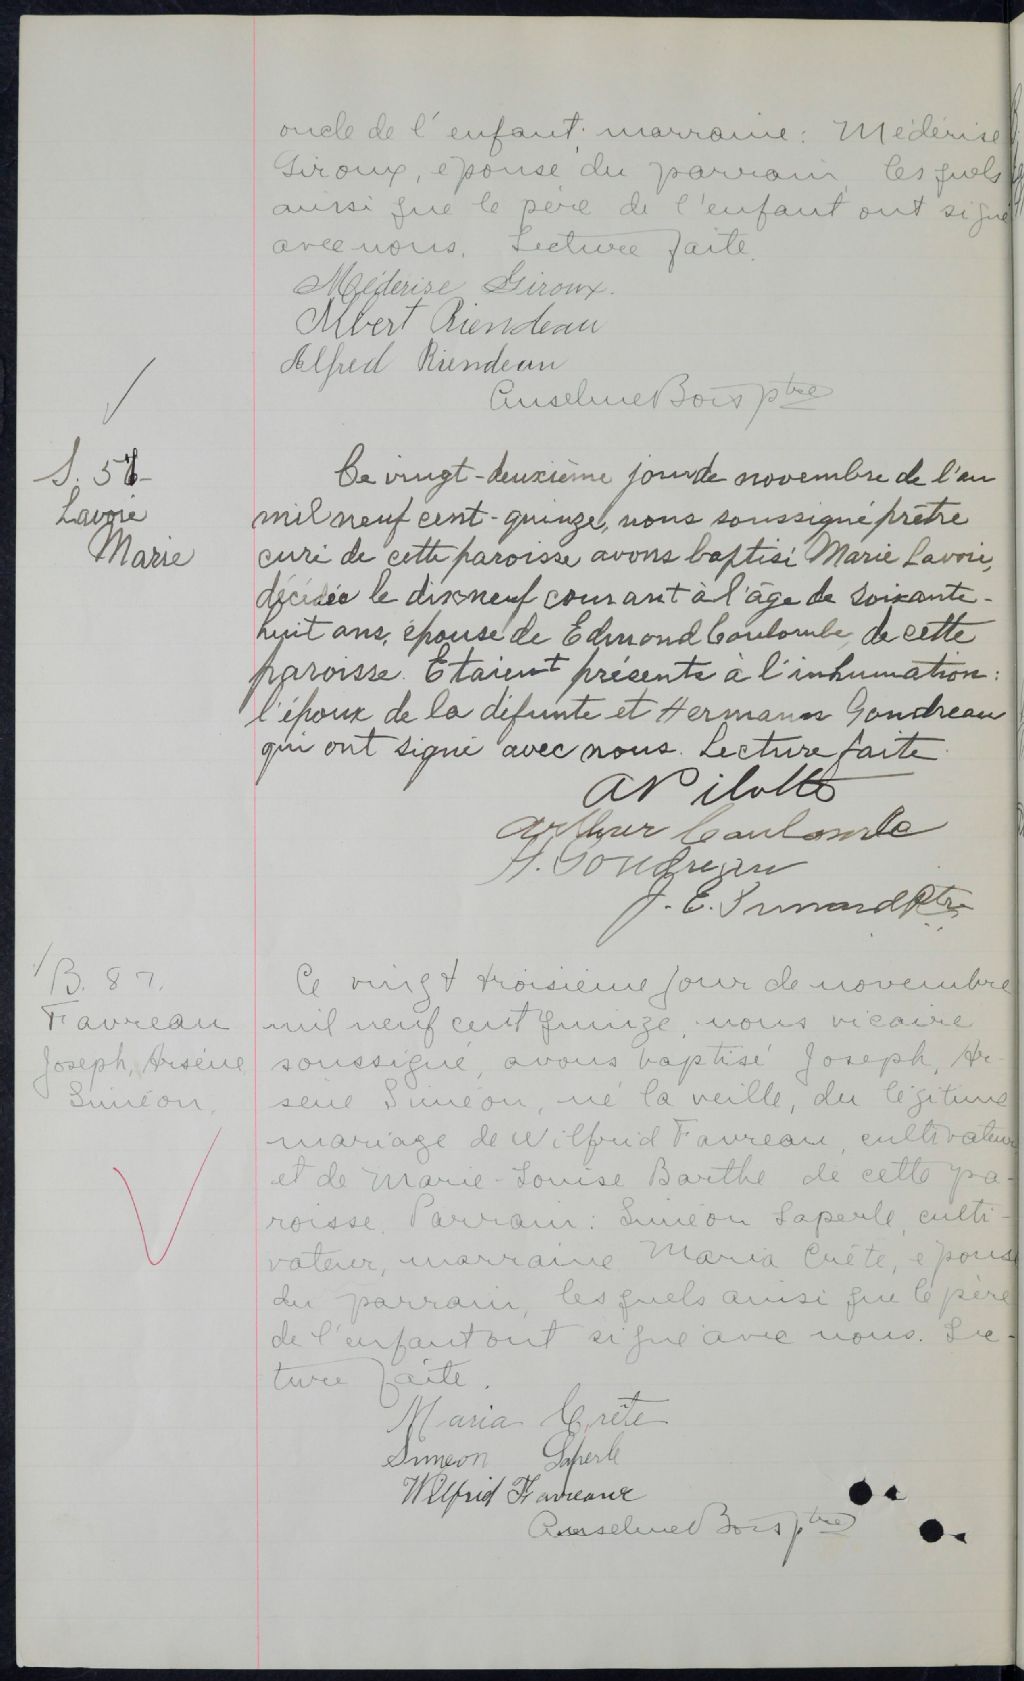 oncle de l'enfant; marraine: Médérise
Giroux, épouse du parrain, lesquels
ainsi que le père de l'enfant ont signé
avec nous. Lecture faite.
Médérise Giroux.
Albert Riendeau
Alfred Riendeau
Anselme Bois ptre
S. 51-
Lavoie
Marie
Ce vingt-deuxième jour de novembre de l'an
mil neuf cent-quinze, nous soussigné prêtre
curé de cette paroisse avons baptisé Marie Lavoie,
décédée le dix neuf courant à l'âge de soixante-
huit ans, épouse de Edmond Coulombe, de cette
paroisse. Etaient présents à l'inhumation:
l'époux de la défunte et Hermann Gondreau
qui ont signé avec nous. Lecture faite
A Pilotte
Arthur Coulombe
H. Gondreau
J. E. Ptre
B. 87.
Favreau
Joseph, Arsène
Siméon.
Ce vingt troisième jour de novembre
mil neuf cent quinze, nous vicaire
soussigné, avons baptisé Joseph, Ar-
sène Siméon, né la veille, du légitime
mariage de Wilfrid Favreau, cultivateur
et de Marie-Louise Barthe de cette pa-
roisse. Parrain: Siméon Laperle, culti-
vateur, marraine Maria Crête, épouse
du parrain, lesquels ainsi que le père
de l'enfant ont signé avec nous. Lec-
ture faite.
Maria Crête
Simeon Laperle
Wilfrid Favreau
Anselme Bois ptre